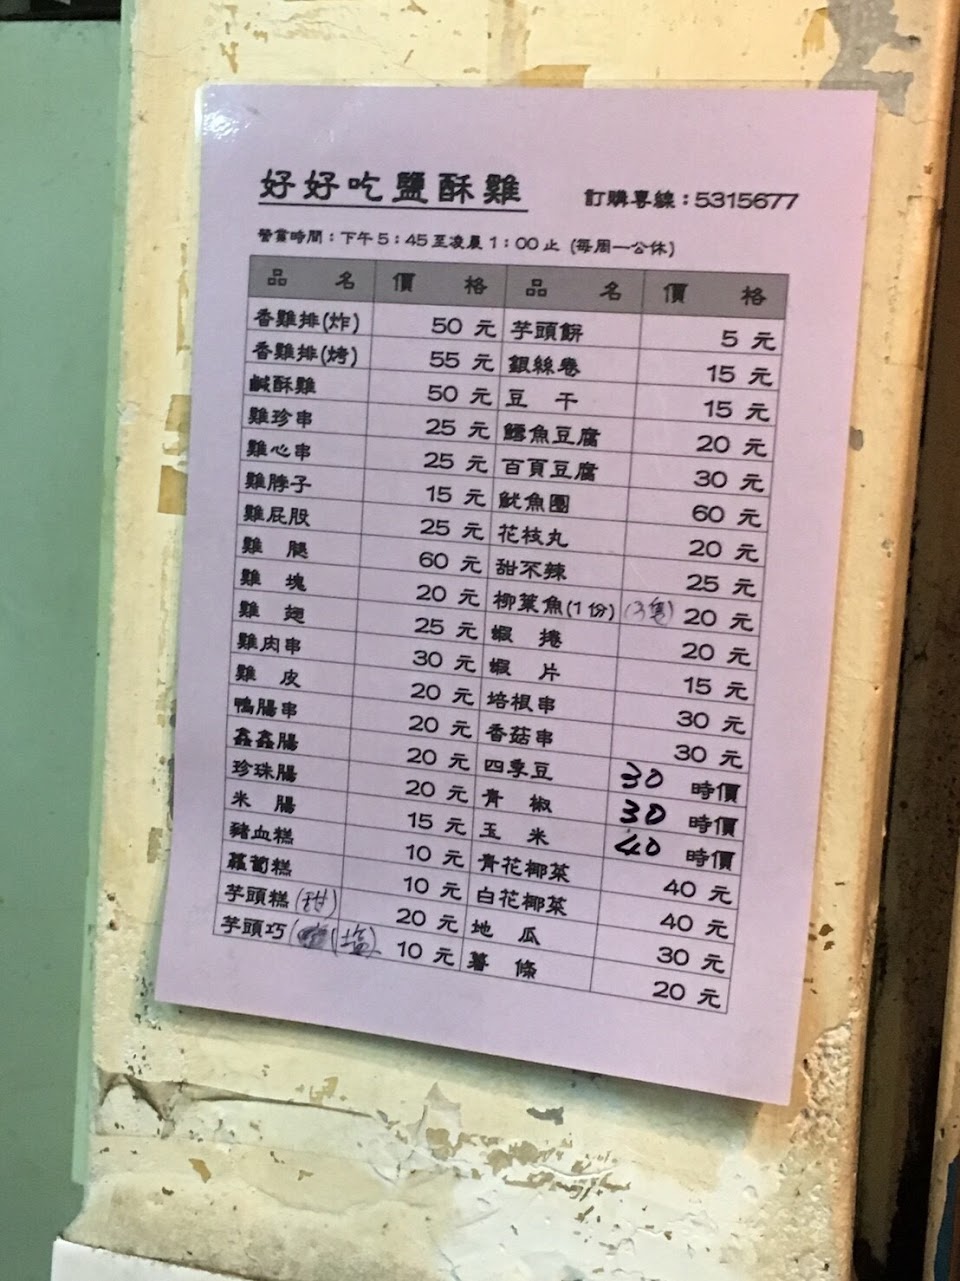 好好吃鹽酥雞 訂購專線：5315677
營業時間：下午5：45至凌晨1：00止 (每周一公休)
品 名 價 格 品 名 價 格
香雞排(炸) 50 元 芋頭餅 5 元
香雞排(烤) 55 元 銀絲卷 15 元
鹹酥雞 50 元 豆 干 15 元
雞珍串 25 元 鱈魚豆腐 20 元
雞心串 25 元 百頁豆腐 30 元
雞脖子 15 元 魷魚團 60 元
雞屁股 25 元 花枝丸 20 元
雞 腿 60 元 甜不辣 25 元
雞 塊 20 元 柳葉魚(1份) (3隻) 20 元
雞 翅 25 元 蝦 捲 20 元
雞肉串 30 元 蝦 片 15 元
雞 皮 20 元 培根串 30 元
鴨腸串 20 元 香菇串 30 元
鑫鑫腸 20 元 四季豆 30 時價
珍珠腸 20 元 青 椒 30 時價
米 腸 15 元 玉 米 40 時價
豬血糕 10 元 青花椰菜 40 元
蘿蔔糕 10 元 白花椰菜 40 元
芋頭糕(甜) 20 元 地 瓜 30 元
芋頭巧(塩) 10 元 薯 條 20 元